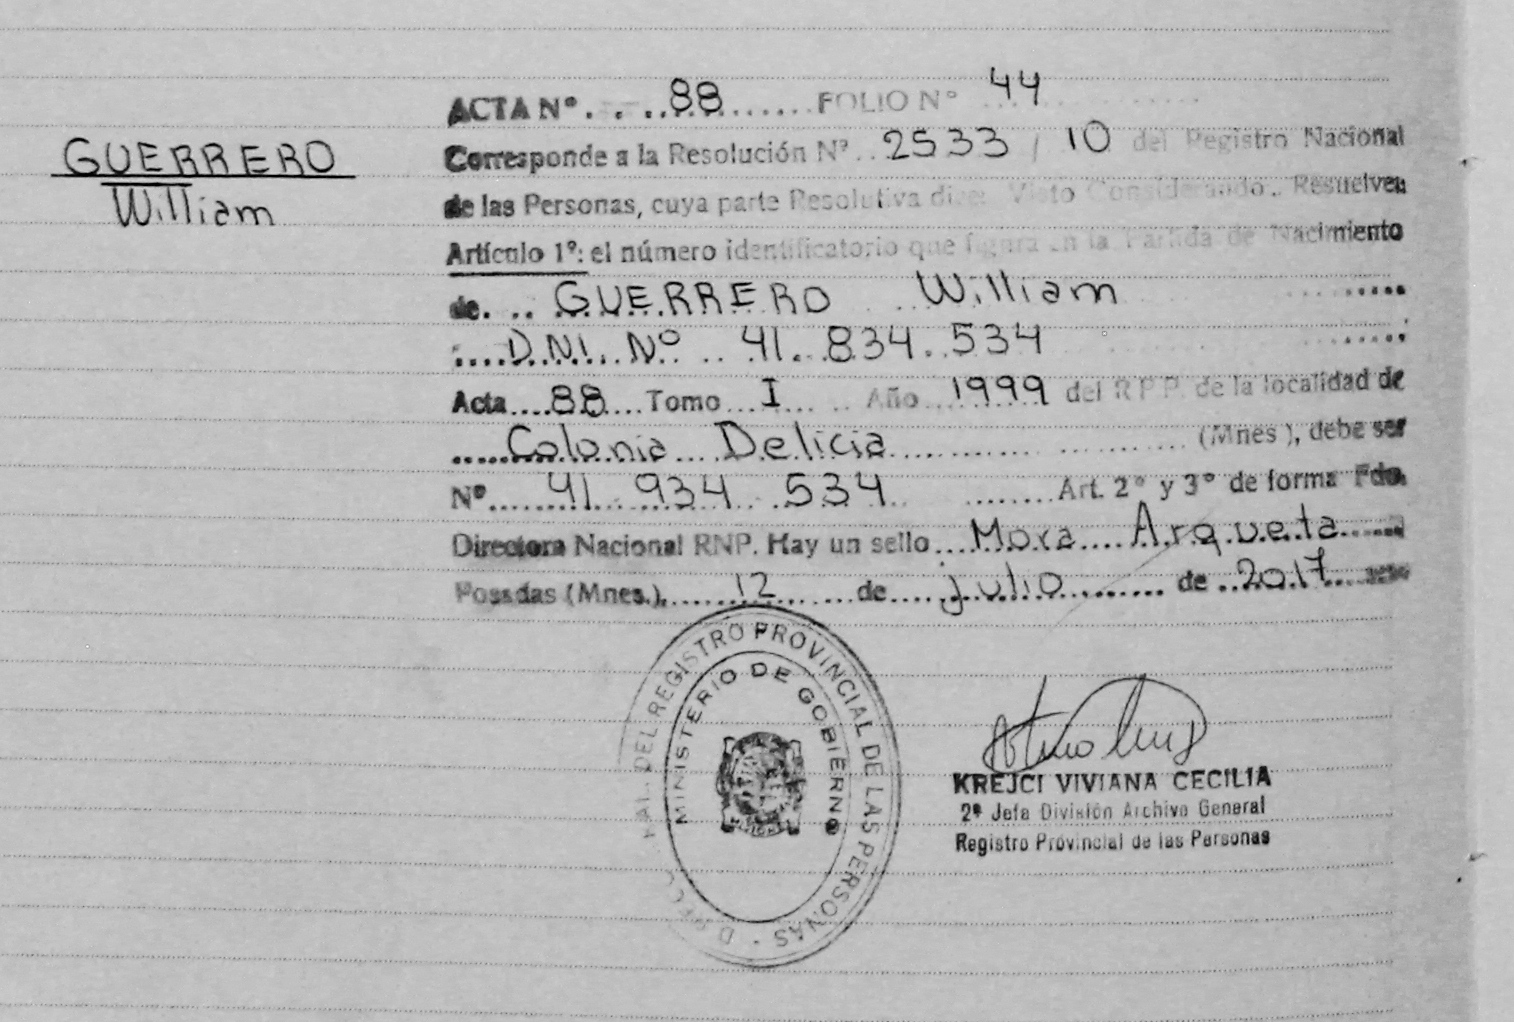 GUERRERO
William
ACTA Nº 88 FOLIO Nº 44
Corresponde a la Resolución Nº 2533 / 10 del Registro Nacional
de las Personas, cuya parte Resolutiva dice: Visto Considerando.. Resuelve:
Artículo 1º: el número identificatorio que figura en la Partida de Nacimiento
de. GUERRERO William
D.N.I. Nº 41.834.534
Acta 88 Tomo I Año 1999 del R P P. de la localidad de
Colonia Delicia (Mnes), debe ser
Nº 41.934.534 Art. 2º y 3º de forma Fdo.
Directora Nacional RNP. Hay un sello Mora Arqueta
Posadas (Mnes.), 12 de julio de 2017
DEL REGISTRO PROVINCIAL DE LAS PERSONAS
MINISTERIO DE GOBIERNO
KREJCI VIVIANA CECILIA
2ª Jefa División Archivo General
Registro Provincial de las Personas